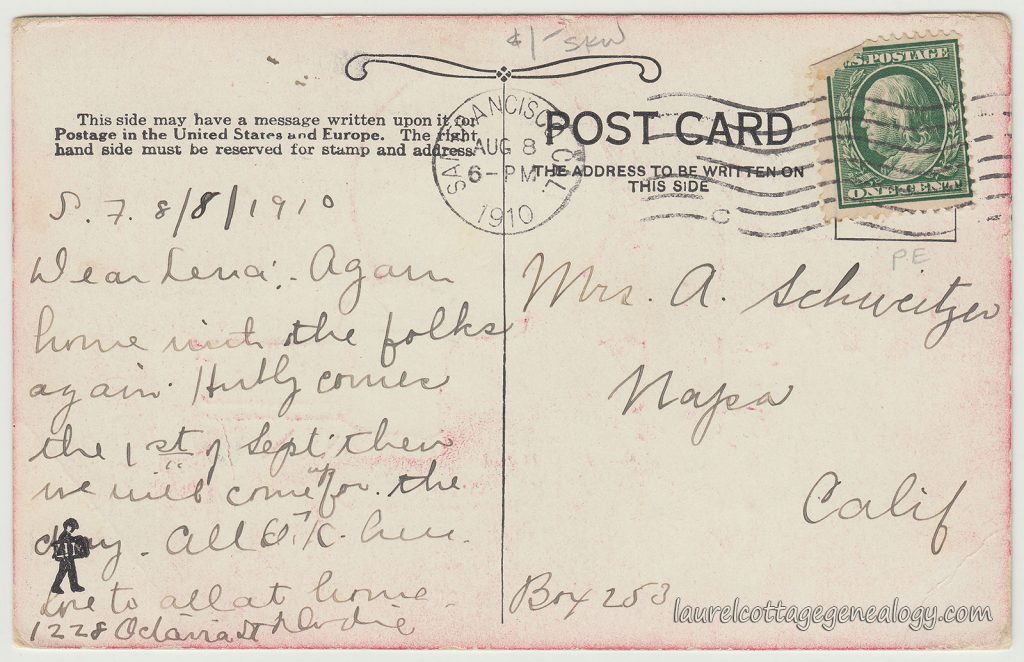 $1- SKW
This side may have a message written upon it for
Postage in the United States and Europe. The right
hand side must be reserved for stamp and address.
SAN FRANCISCO, CAL.
AUG 8
6-PM
1910
POST CARD
THE ADDRESS TO BE WRITTEN ON
THIS SIDE
C
U.S.POSTAGE
ONE CENT
P.E
S. F. 8/8/1910
Dear Lena:- Again
home with the folks
again. Hubby comes
the 1st of Sept. then
we will come up for the
day. All O.K. here.
Love to all at home.
1228 Octavia St
Mrs. A. Schweitzer
Napa
Calif
Box 253
laurelcottagegenealogy.com